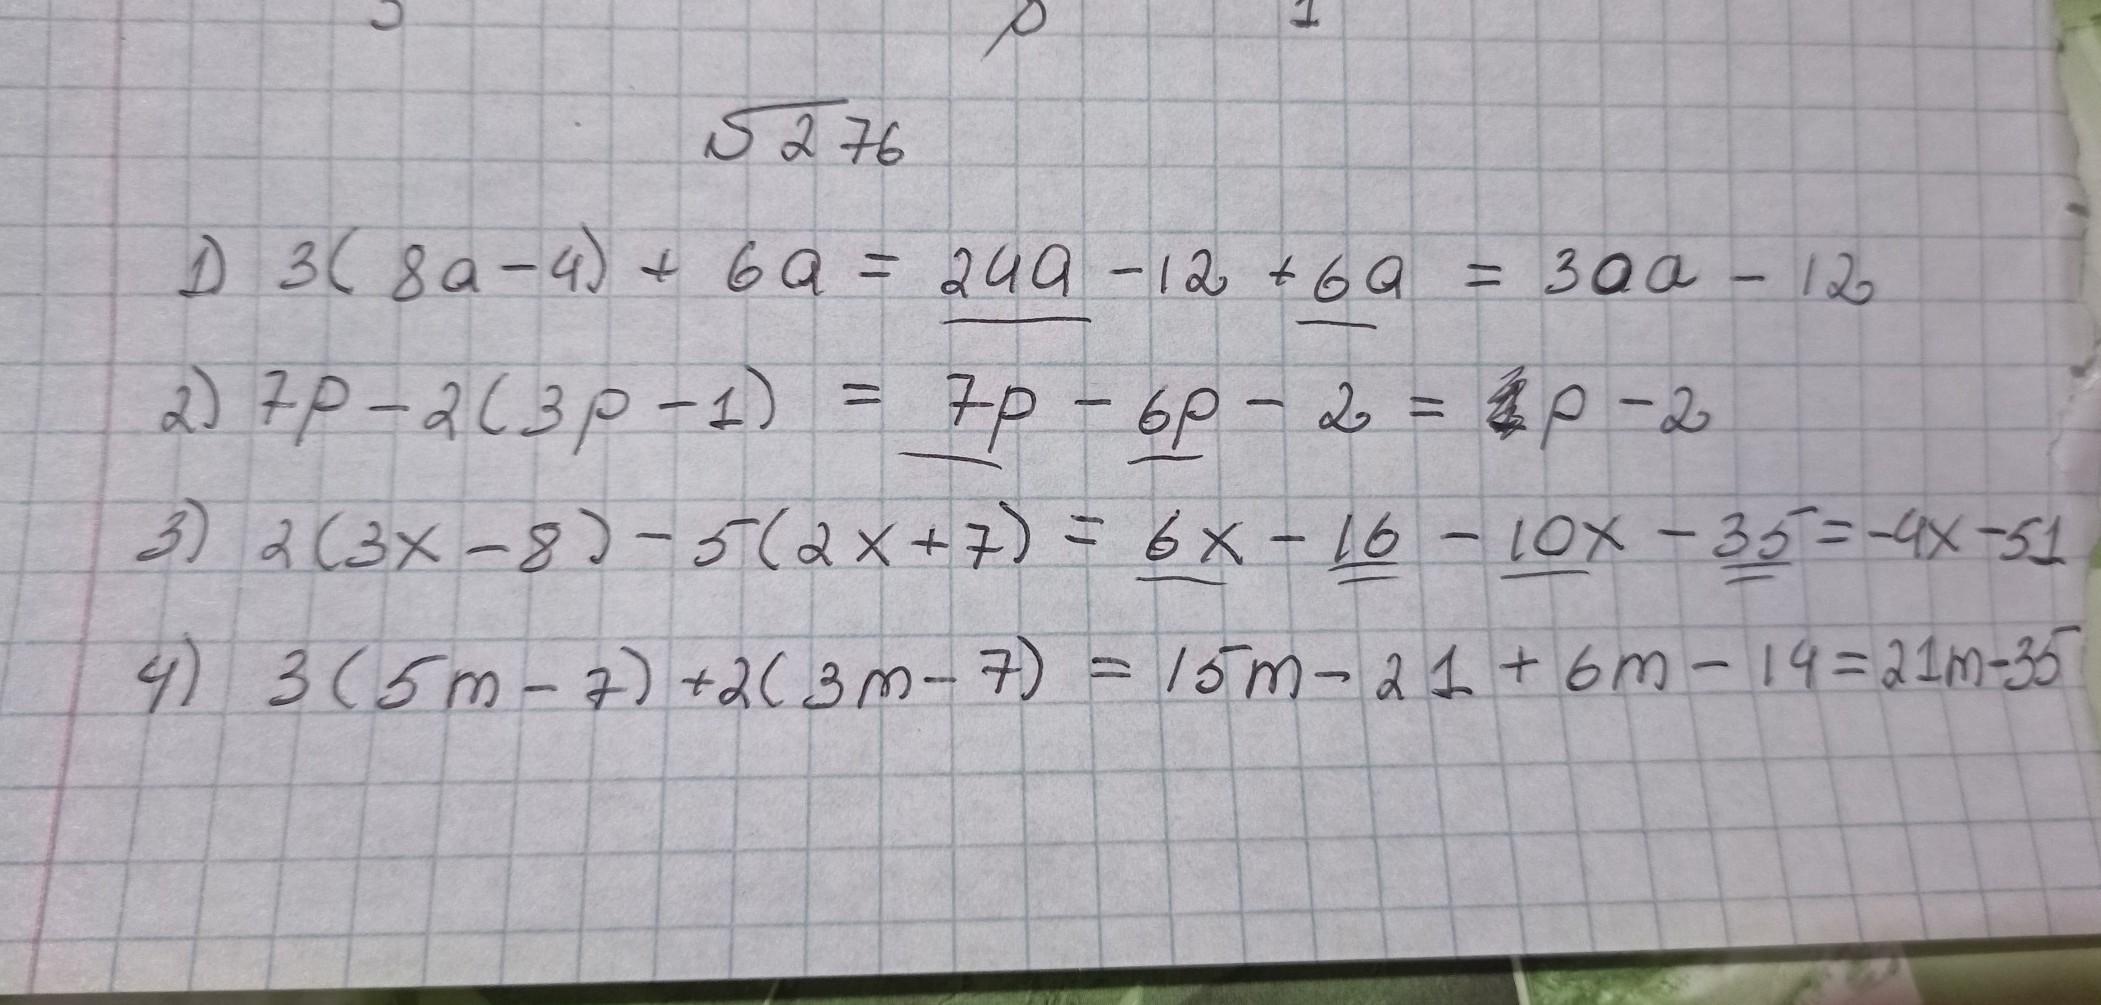 √276
1) 3(8a-4) + 6a = 24a - 12 + 6a = 30a - 12
2) 7p - 2(3p - 1) = 7p - 6p - 2 = p - 2
3) 2(3x - 8) - 5(2x + 7) = 6x - 16 - 10x - 35 = -4x - 51
4) 3(5m - 7) + 2(3m - 7) = 15m - 21 + 6m - 14 = 21m - 35